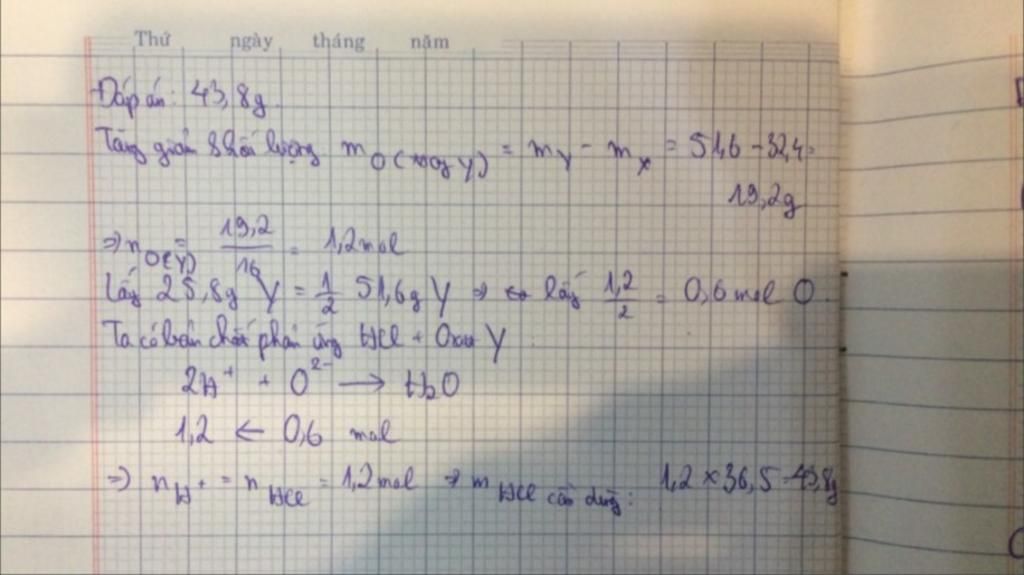 Thứ ngày tháng năm
Đáp án: 43,8g
Tăng giảm khối lượng mO(trong Y) = mY - mX = 51,6 - 32,4 =
19,2g
⇒ nO(Y) = 19,2/16 = 1,2 mol
Lấy 25,8g Y = 1/2 51,6g Y ⇒ lấy 1,2/2 = 0,6 mol O
Ta có bản chất phản ứng HCl + O Y
2H⁺ + O²⁻ → H₂O
1,2 ← 0,6 mol
⇒ nH⁺ = nHCl = 1,2 mol ⇒ mHCl cần dùng: 1,2 × 36,5 = 43,8g